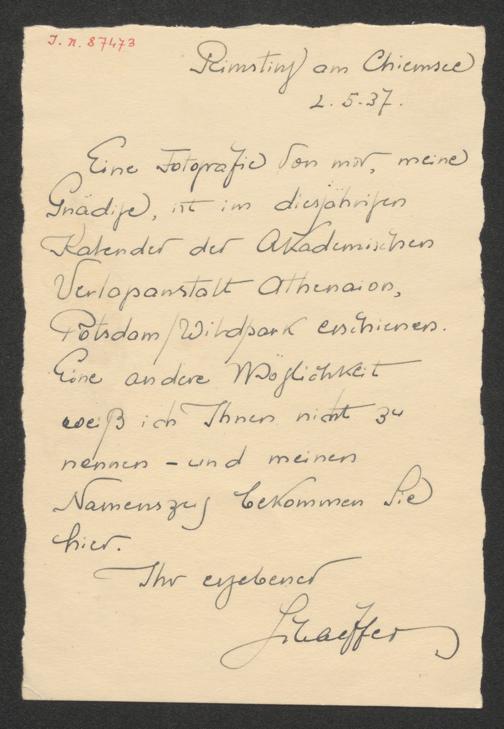 J. N. 87473
Rimsting am Chiemsee
2. 5. 37.
Eine Fotografie von mir, meine
Gnädige, ist im diesjährigen
Kalender der Akademischen
Verlagsanstalt Athenaion,
Potsdam/Wildpark erschienen.
Eine andere Möglichkeit
weiß ich Ihnen nicht zu
nennen – und meinen
Namenszug bekommen Sie
hier.
Ihr ergebener
Schaeffer